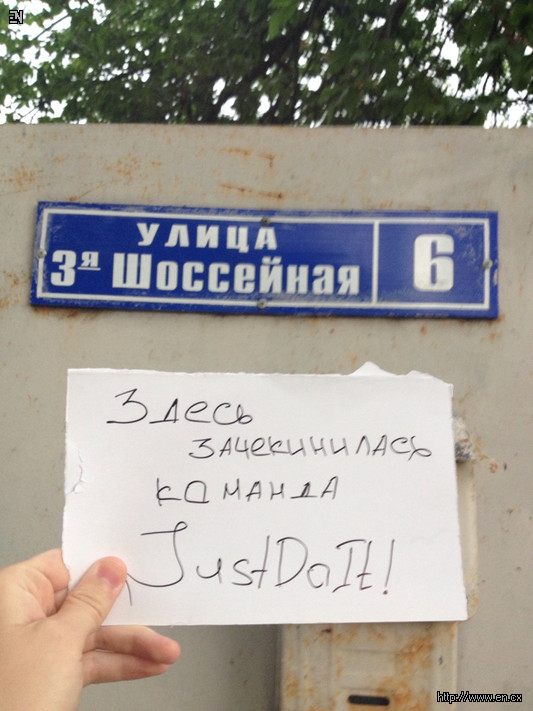 EN
УЛИЦА
3я Шоссейная 6
Здесь
зачекинилась
команда
JustDoIt!
http://www.en.cx